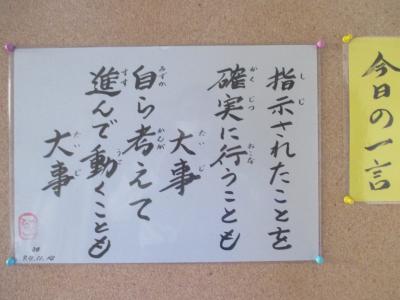 今日の一言
指示されたことを
確実に行うことも
大事
自ら考えて
進んで動くことも
大事